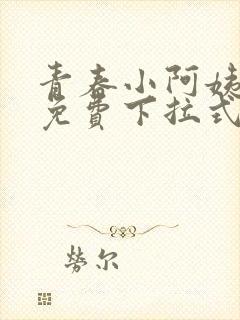 青春小阿姨
免費下拉式
勞尔